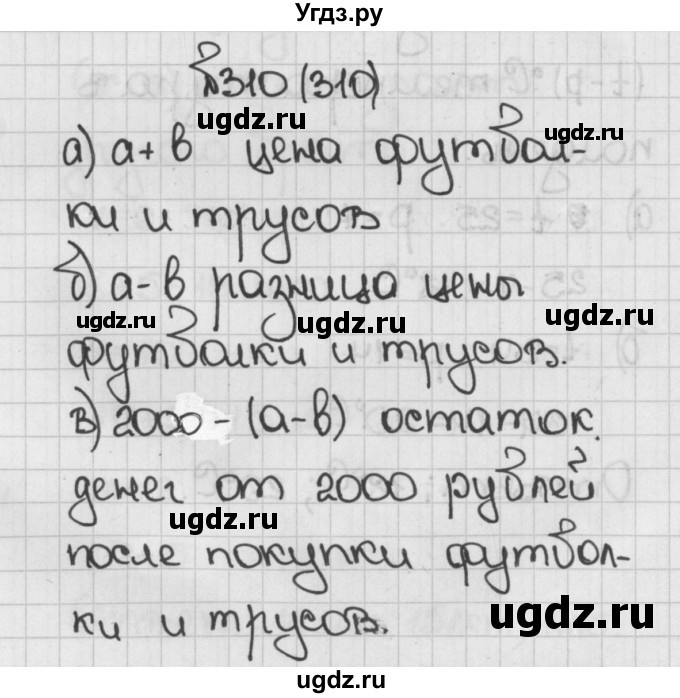 Угдз.ру
№310 (310)
ugdz.ru
а) а+в цена футбол-
ugdz.ru
ки и трусов
б) а-в разница цены
ugdz.ru ugdz.ru ugdz.ru
футболки и трусов.
в) 2000-(а-в) остаток
денег от 2000 рублей
ugdz.ru
после покупки футбол-
ugdz.ru
ки и трусов.
ugdz.ru
ugdz.ru